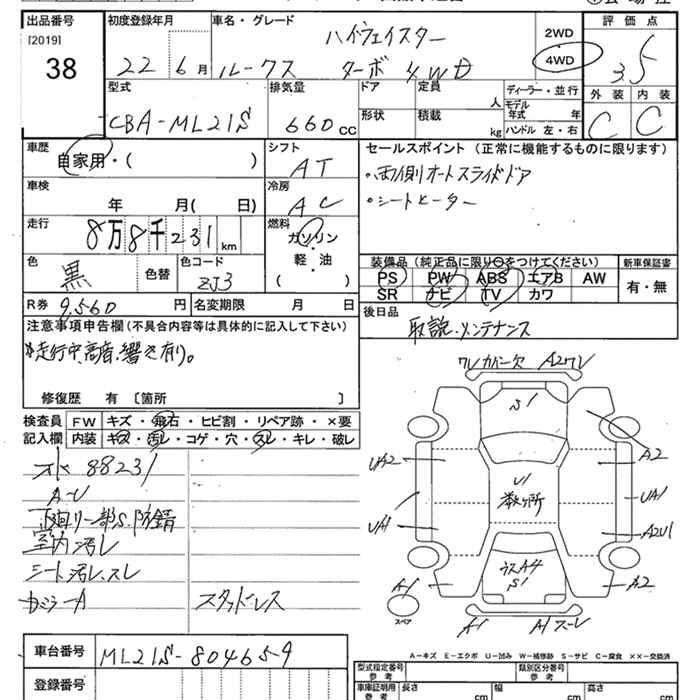 出品番号
[2019]
38
初度登録年月
22 6月
車名・グレード
ハイウェイスター
ルークス ターボ 4WD
2WD
4WD
評価点
3.5
外装 内装
C C
型式
CBA-ML21S
排気量
660 CC
ドア
形状
定員
人
積載
kg
ディーラー・並行
モデル年式 年
ハンドル 左・右
車歴
自家用・( )
シフト
AT
車検
年 月( 日)
冷房
AC
走行
8万8千231km
燃料
ガソリン
・
軽・油
( )
色
黒
色替
色コード
ZJ3
R券 9,560 円
名変期限 月 日
セールスポイント (正常に機能するものに限ります)
・両側オートスライドドア
・シートヒーター
装備品(純正品に限り〇をつけてください)
PS PW ABS エアB AW
SR ナビ TV カワ
新車保証書
有・無
後日品
取説.メンテナンス
注意事項申告欄(不具合内容等は具体的に記入して下さい)
*走行中、高音、響き有り。
修復歴 有 〔箇所 〕
検査員記入欄
FW キズ・飛石・ヒビ割・リペア跡・×要
内装 キズ・汚レ・コゲ・穴・スレ・キレ・破レ
88231
下廻り一部S.防錆
室内汚レ
シート汚レ、スレ
カジラーA
スタッドレス
ワレカバー欠 A2ワレ
S1
UA2
A2
U1
数ヶ所
UA1
UA1
A2U1
ウスA4
S1
A1
A2
スペア
A1
A1スレ
A−キズ E−エクボ U−凹み W−補修跡 S−サビ C−腐食 ××−交換済
車台番号
ML21S-804659
登録番号
型式指定番号
参考
類別区分番号
参考
車庫証明用
参考
長さ cm
幅 cm
高さ cm